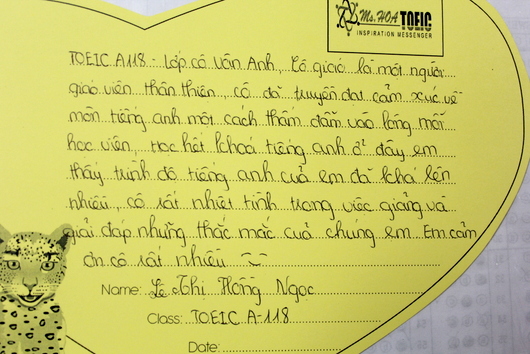 Ms. HOA TOEIC
INSPIRATION MESSENGER
TOEIC A118 - Lớp cô Vân Anh, Cô giáo là một người
giáo viên thân thiện, cô đã truyền đạt cảm xúc về
môn tiếng anh một cách thấm đẫm vào lòng mỗi
học viên, Học hết khoá tiếng anh ở đây em
thấy trình độ tiếng anh của em đã khá lên
nhiều, cô rất nhiệt tình trong việc giảng và
giải đáp những thắc mắc của chúng em. Em cảm
ơn cô rất nhiều
Name: Lê Thị Hồng Ngọc
Class: TOEIC A-118
Date: